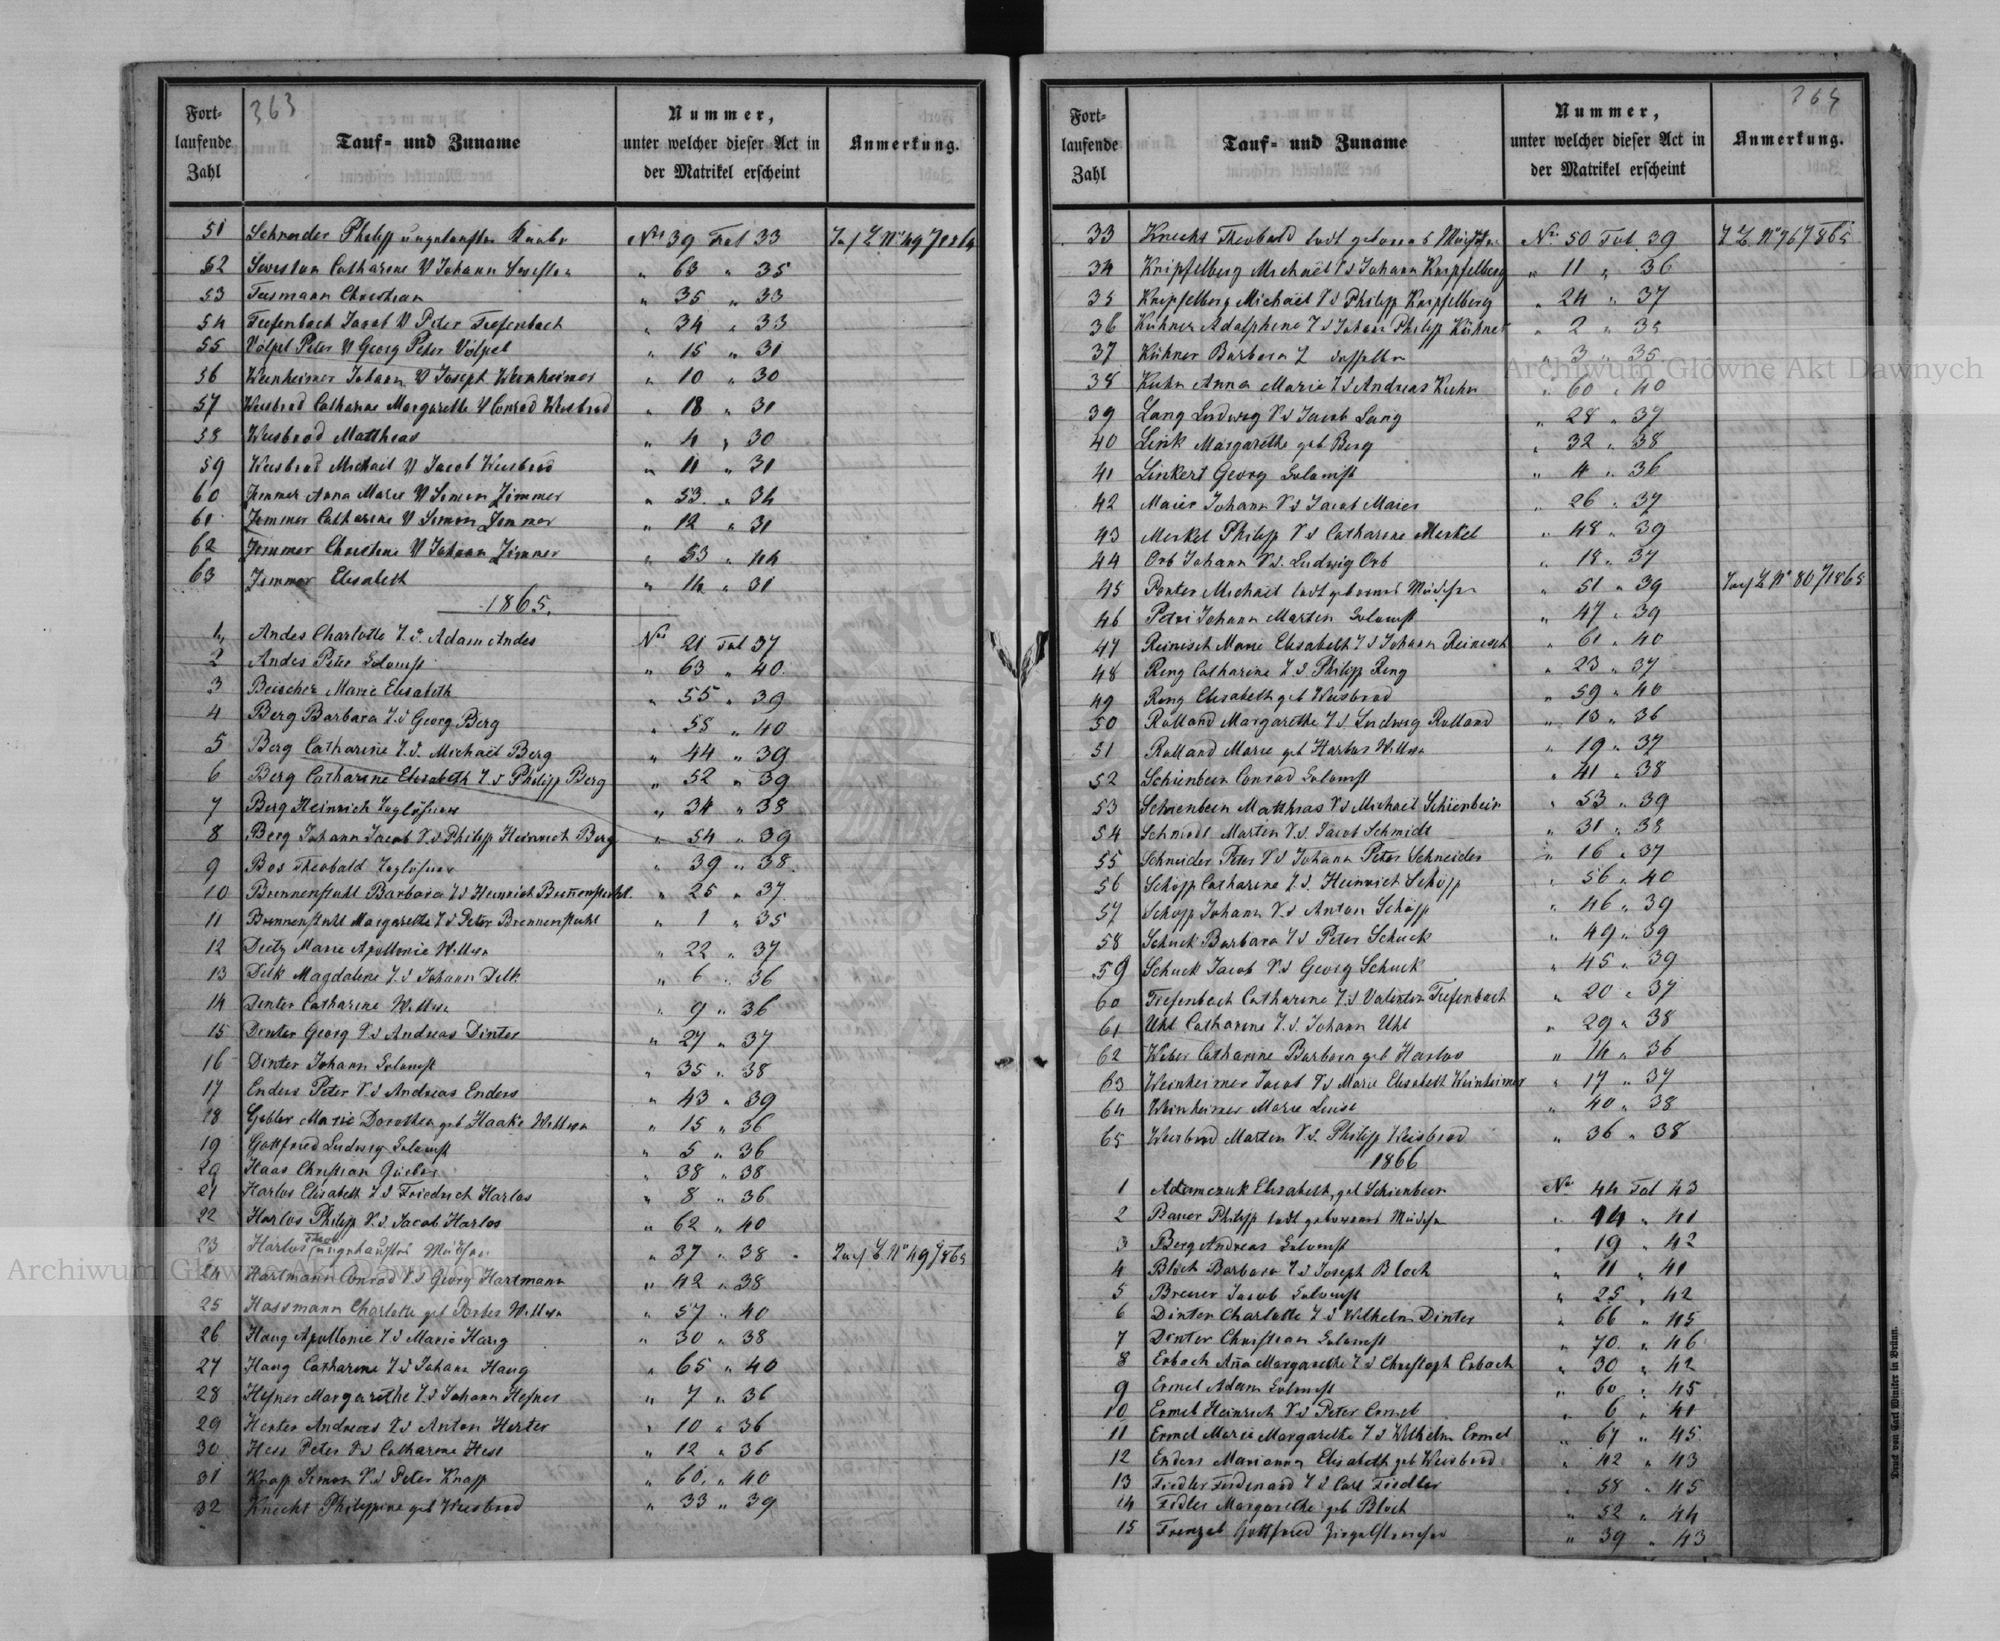 363
Fort-
laufende
Zahl
Tauf- und Zuname
Nummer,
unter welcher dieser Act in
der Matrikel erscheint
Anmerkung.
51 Schneider Philipp ungetaufter Knabe Nus 39 Fol 33
52 Catharine V Johann " 63 " 35
53 Tiesmann Christian " 35 " 33
54 Tiefenbach Jacob V Peter Tiefenbach " 34 " 33
55 Völpel Peter V Georg Peter Völpel " 15 " 31
56 Weinheimer Johann V Joseph Weinheimer " 10 " 30
57 Weisbrod Catharine Margarethe V Conrad Weisbrod " 18 " 31
58 Weisbrod Matthias " 4 " 30
59 Weisbrod Michael V Jacob Weisbrod " 11 " 31
60 Zimmer Anna Marie V Simon Zimmer " 53 " 34
61 Zimmer Catharine V Simon Zimmer " 12 " 31
62 Zimmer Christine V Johann Zimmer " 53 " 44
63 Zimmer Elisabeth " 14 " 31
1865.
1 Andes Charlotte T. d. Adam Andes Nus 21 Fol 37
2 Andes Peter Kolonist " 63 " 40.
3 Beischer Marie Elisabeth " 55 " 39
4 Berg Barbara T. d Georg Berg " 58 " 40
5 Berg Catharine T. d. Michael Berg " 44 " 39
6 Berg Catharine Elisabeth T. d Philipp Berg " 52 " 39
7 Berg Heinrich Taglöhner " 34 " 38
8 Berg Johann Jacob S. d Philipp Heinrich Berg " 54 " 39
9 Bos Theobald Taglöhner " 39 " 38.
10 Brennenstuhl Barbara T d Heinrich Breñenstuhl. " 25 " 37.
11 Brennenstuhl Margarethe T d Peter Brennenstuhl " 1 " 35
12 Dietz Marie Apollonie Wittwe " 22 " 37
13 Dilk Magdalene T d Johann Dilk. " 6 " 36
14 Dinter Catharine Wittwe " 9 " 36
15 Dinter Georg S d Andreas Dinter " 27 " 37
16 Dinter Johann Kolonist " 35 " 38
17 Enders Peter S. d Andreas Enders " 43 " 39
18 Gebler Marie Dorothea geb Haake Wittwe " 15 " 36
19 Gottfried Ludwig Kolonist " 5 " 36
20 Haas Christian " 38 " 38
21 Harlos Elisabeth T d Friedrich Harlos " 8 " 36
22 Harlos Philipp S. d. Jacob Harlos " 62 " 40
23 Harlos ungetauftes Mädchen " 37 " 38
24 Hartmann Conrad S d Georg Hartmann " 42 " 38
25 Hassmann Charlotte geb Porter Wittwe " 57 " 40
26 Haug Apollonie T d Marie Haug " 30 " 38
27 Haug Catharine T d Johann Haug " 65 " 40
28 Hefner Margarethe T d Johann Hefner " 7 " 36
29 Herter Andreas S d Anton Herter " 10 " 36
30 Hess Peter S d Catharine Hess " 12 " 36
31 Knapp Simon S. d Peter Knapp " 60 " 40
32 Knecht Philippine geb Weisbrod " 33 " 39
Fort-
laufende
Zahl
Tauf- und Zuname
Nummer,
unter welcher dieser Act in
der Matrikel erscheint
Anmerkung.
33 Knecht Theobald todt geborenes Mädchen Nus 50 Fol 39
34 Knipfelberg Michaël S d Johann Knipfelberg " 11 " 36
35 Knipfelberg Michaël S d Philipp Knipfelberg " 24 " 37
36 Kühner Adolphine T d Johann Philipp Kühner " 2 " 35
37 Kühner Barbara T desselben " 3 " 35
38 Kuhn Anna Marie T d Andreas Kuhn " 60 " 40
39 Lang Ludwig S d Jacob Lang " 28 " 37
40 Link Margarethe geb Berg " 32 " 38
41 Linkert Georg Kolonist " 4 " 36
42 Maier Johann S d Jacob Maier " 26 " 37
43 Merkel Philipp S d Catharine Merkel " 48 " 39
44 Orb Johann S d. Ludwig Orb " 18 " 37
45 Porter Michael todt geborenes Mädchen " 51 " 39
46 Petri Johann Martin Kolonist " 47 " 39
47 Reinisch Marie Elisabeth T d Johann Reinisch " 61 " 40
48 Ring Catharine T. d Philipp Ring " 23 " 37
49 Ring Elisabeth geb Weisbrod " 59 " 40
50 Rolland Margarethe T d. Ludwig Rolland " 13 " 36
51 Rolland Marie geb Harlos Wittwe " 19 " 37
52 Schienbein Conrad Kolonist " 41 " 38
53 Schienbein Matthias S d Michael Schienbein " 53 " 39
54 Schmidt Martin S. d. Jacob Schmidt " 31 " 38
55 Schneider Peter S d Johann Peter Schneider " 16 " 37
56 Schöpp Catharine T. d. Heinrich Schöpp " 56 " 40
57 Schöpp Johann S. d Anton Schöpp " 46 " 39
58 Schuck Barbara T d Peter Schuck " 49 " 39
59 Schuck Jacob S. d Georg Schuck " 45 " 39
60 Tiefenbach Catharine T. d Valentin Tiefenbach " 20 " 37
61 Uhl Catharine T. d. Johann Uhl " 29 " 38
62 Weber Catharine Barbara geb Harlos " 14 " 36
63 Weinheimer Jacob S d Marie Elisabeth Weinheimer " 17 " 37
64 Weinheimer Marie Luise " 40 " 38
65 Weisbrod Martin S. d. Philipp Weisbrod " 36 " 38
1866
1 Adamczuk Elisabeth, geb Schienbein Nus 44 Fol 43
2 Bauer Philipp todt geborenes Mädchen " 14 " 41
3 Berg Andreas Kolonist " 19 " 42
4 Bloch Barbara T d Joseph Bloch " 11 " 41
5 Breuer Jacob Kolonist " 25 " 42
6 Dinter Charlotte T d Wilhelm Dinter " 66 " 45
7 Dinter Christian Kolonist " 70 " 46
8 Erbach Aña Margarethe T d Christoph Erbach " 30 " 42
9 Ermel Adam Kolonist " 60 " 45
10 Ermel Heinrich S d Peter Ermel " 6 " 41
11 Ermel Marie Margarethe T d Wilhelm Ermel " 67 " 45
12 Enders Marianna Elisabeth geb Weisbrod " 42 " 43
13 Fiedler Ferdinand S d Carl Fiedler " 58 " 45
14 Fidler Margarethe geb Bloch " 52 " 44
15 Frenzel Gottfried " 39 " 43
Druck von Carl Winiker in Brünn.
Archiwum Główne Akt Dawnych
Archiwum Główne Akt Dawnych